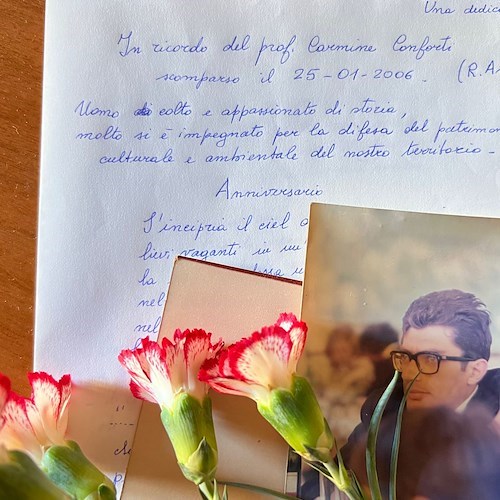 Una dedic
In ricordo del prof. Carmine Conforti
scomparso il 25-01-2006. (R.A.
Uomo colto e appassionato di storia,
molto si è impegnato per la difesa del patrimon
culturale e ambientale del nostro territorio -
Anniversario
S'incipria il ciel
lievi vaganti in
la
nel
nel